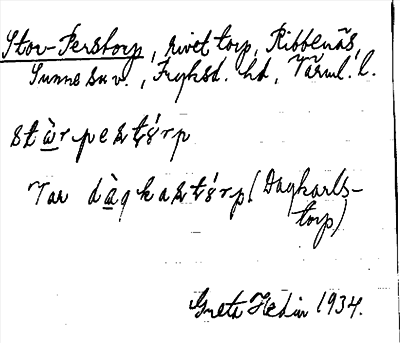 Stor-Perstorp, rivet torp, Ribbenäs,
Sunne sn v., Fryksd. hd, Värml. l.
stẁrpesstórp
Tar dàgkasstórp (Dagkarls-
torp)
Greta Hedin 1934.